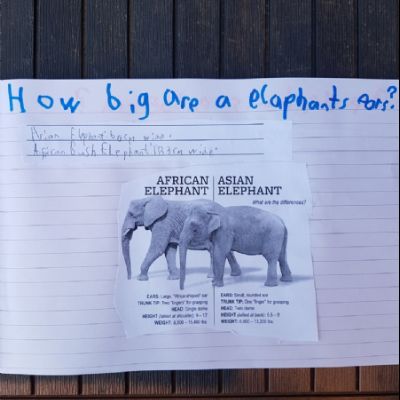 How big are a elaphants ears?
Asian Elephant 60cm wide.
African bush Elephant 183cm wide.
AFRICAN ELEPHANT
ASIAN ELEPHANT
What are the differences?
EARS: Large, "Africa-shaped" ear
TRUNK TIP: Two "fingers" for grasping
HEAD: Single dome
HEIGHT (tallest at shoulder):
WEIGHT:
EARS: Small, rounded ear
TRUNK TIP: One "finger" for grasping
HEAD: Twin dome
HEIGHT (tallest at back):
WEIGHT: